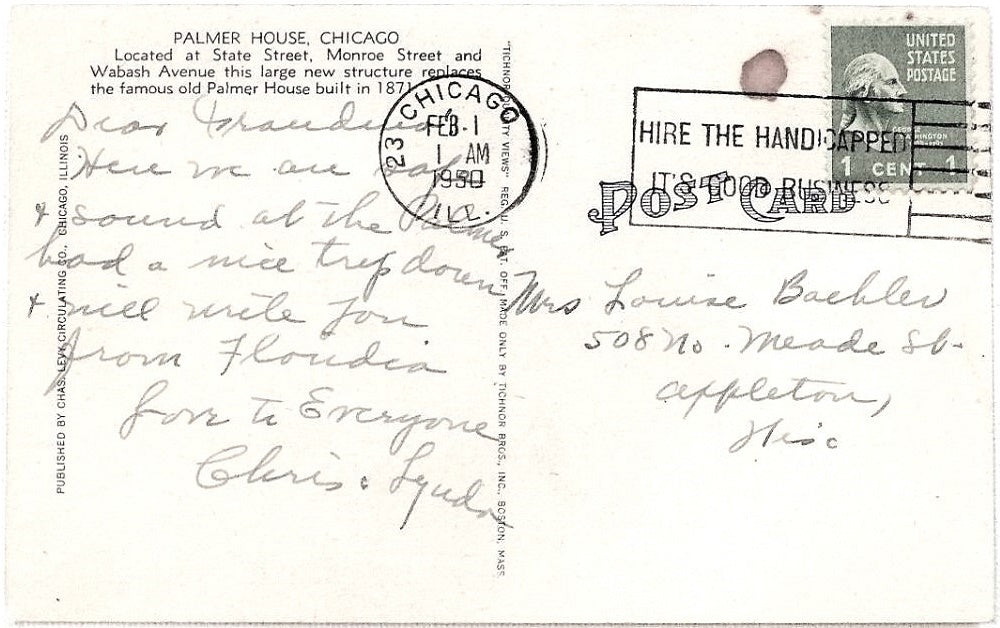 PALMER HOUSE, CHICAGO
Located at State Street, Monroe Street and
Wabash Avenue this large new structure replaces
the famous old Palmer House built in 1871
Dear Grandma
Here we are safe
& sound at the Palmer
had a nice trip down
& will write you
from Floudia
Love to Everyone
Chris & Lynda
PUBLISHED BY CHAS. LEVY CIRCULATING CO., CHICAGO, ILLINOIS
"TICHNOR QUALITY VIEWS" REG. U. S. PAT. OFF. MADE ONLY BY TICHNOR BROS., INC., BOSTON, MASS.
CHICAGO
23
FEB 1
1 AM
1950
ILL.
HIRE THE HANDICAPPED
IT'S GOOD BUSINESS
UNITED
STATES
POSTAGE
GEORGE
WASHINGTON
1 CENT 1
POST CARD
Mrs Louise Baehler
508 No. Meade St.
Appleton,
Wisc